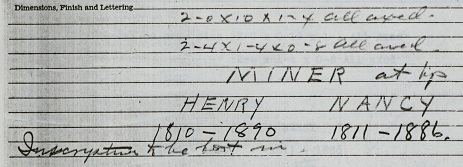 Dimensions, Finish and Lettering
2-0x10x1-4 all axed.
2-4x1-4x0-8 all axed.
MINER at top
HENRY NANCY
1810-1890 1811-1886.
Inscription to be cut in.